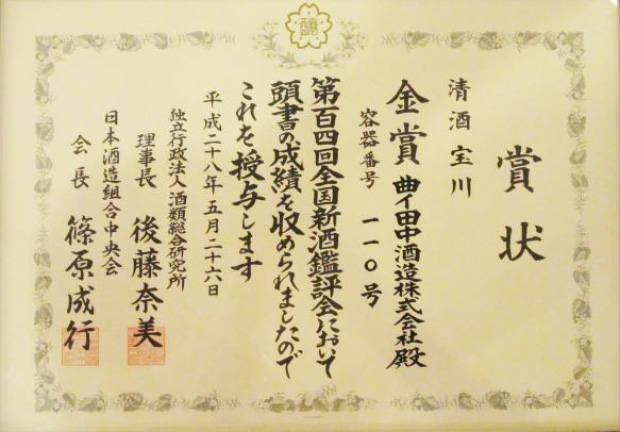 賞状
清酒 宝川
金賞 曲イ田中酒造株式会社殿
容器番号 一一〇号
第百四回全国新酒鑑評会において
頭書の成績を収められましたので
これを授与します
平成二十八年五月二十六日
独立行政法人酒類総合研究所
理事長 後藤奈美
日本酒造組合中央会
会長 篠原成行